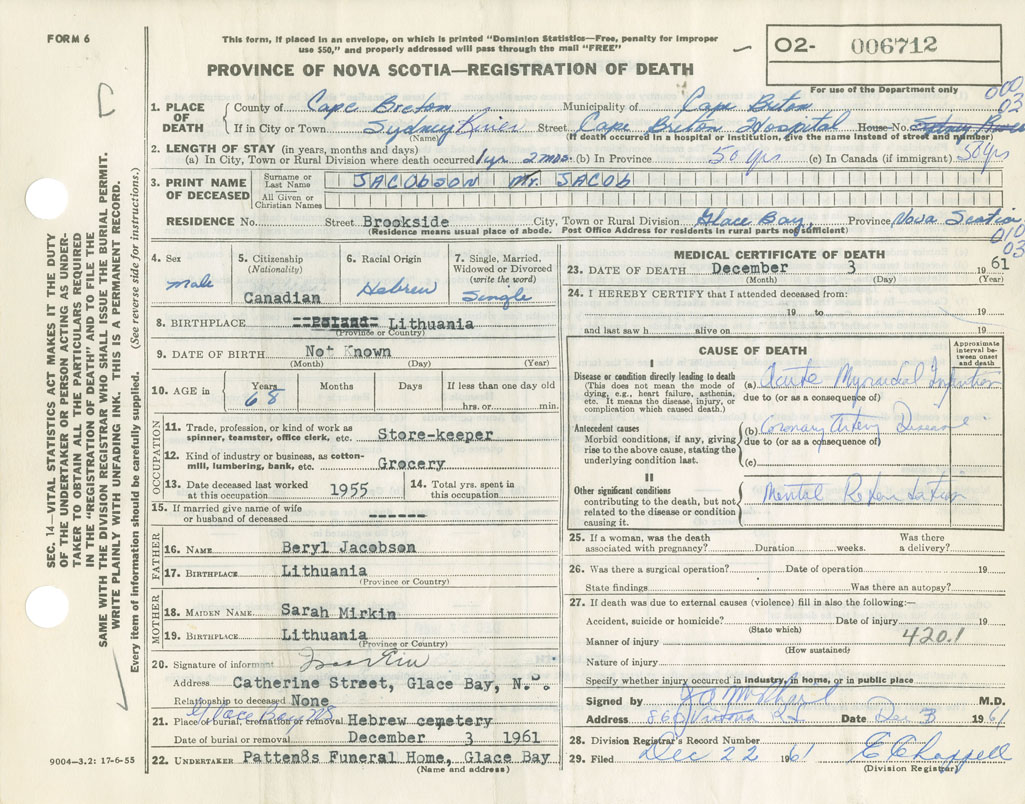 FORM 6
This form, if placed in an envelope, on which is printed "Dominion Statistics—Free, penalty for improper
use $50," and properly addressed will pass through the mail "FREE"
O2- 006712
For use of the Department only
PROVINCE OF NOVA SCOTIA—REGISTRATION OF DEATH
000
03
1. PLACE OF DEATH County of Cape Breton Municipality of Cape Breton
If in City or Town Sydney River Street Cape Breton Hospital House No. Sydney River
(Name) (If death occurred in hospital or institution, give the name instead of street and number)
2. LENGTH OF STAY (in years, months and days)
(a) In City, Town or Rural Division where death occurred 1 yr 2 mos. (b) In Province 50 yrs (c) In Canada (if immigrant) 50 yrs
3. PRINT NAME OF DECEASED Surname or Last Name JACOBSON Mr. JACOB
All Given or Christian Names
RESIDENCE No. Street Brookside City, Town or Rural Division Glace Bay, Province Nova Scotia
(Residence means usual place of abode. Post Office Address for residents in rural parts not sufficient)
010
03
4. Sex Male
5. Citizenship (Nationality) Canadian
6. Racial Origin Hebrew
7. Single, Married, Widowed or Divorced (write the word) Single
8. BIRTHPLACE Poland Lithuania
(Province or Country)
9. DATE OF BIRTH Not Known
(Month) (Day) (Year)
10. AGE in Years 68 Months Days If less than one day old
hrs. or min.
OCCUPATION
11. Trade, profession, or kind of work as spinner, teamster, office clerk, etc. Store-keeper
12. Kind of industry or business, as cotton-mill, lumbering, bank, etc. Grocery
13. Date deceased last worked at this occupation 1955 14. Total yrs. spent in this occupation
15. If married give name of wife or husband of deceased ------
FATHER
16. NAME Beryl Jacobson
17. BIRTHPLACE Lithuania
(Province or Country)
MOTHER
18. MAIDEN NAME Sarah Mirkin
19. BIRTHPLACE Lithuania
(Province or Country)
20. Signature of informant
Address Catherine Street, Glace Bay, N.S.
Relationship to deceased None
Glace Bay NS
21. Place of burial, cremation or removal Hebrew cemetery
Date of burial or removal December 3 1961
22. UNDERTAKER Patten8s Funeral Home, Glace Bay
(Name and address)
MEDICAL CERTIFICATE OF DEATH
23. DATE OF DEATH December 3 1961
(Month) (Day) (Year)
24. I HEREBY CERTIFY that I attended deceased from:
19 to 19
and last saw h alive on 19
CAUSE OF DEATH
Approximate interval between onset and death
I
Disease or condition directly leading to death
(This does not mean the mode of dying, e.g., heart failure, asthenia, etc. It means the disease, injury, or complication which caused death.)
(a) Acute Myocardial Infarction
due to (or as a consequence of)
Antecedent causes
Morbid conditions, if any, giving rise to the above cause, stating the underlying condition last.
(b) Coronary Artery Disease
due to (or as a consequence of)
(c)
II
Other significant conditions
contributing to the death, but not related to the disease or condition causing it.
Mental Retardation
25. If a woman, was the death associated with pregnancy? Duration weeks. Was there a delivery?
26. Was there a surgical operation? Date of operation 19
State findings Was there an autopsy?
27. If death was due to external causes (violence) fill in also the following:—
Accident, suicide or homicide? Date of injury 19
(State which)
420.1
Manner of injury
(How sustained)
Nature of injury
Specify whether injury occurred in industry, in home, or in public place
Signed by M.D.
Address 860 Victoria Date Dec 3 1961
28. Division Registrar's Record Number
29. Filed Dec 22 1961 E Chappell
(Division Registrar)
SEC. 14—VITAL STATISTICS ACT MAKES IT THE DUTY
OF THE UNDERTAKER OR PERSON ACTING AS UNDER-
TAKER TO OBTAIN ALL THE PARTICULARS REQUIRED
IN THE "REGISTRATION OF DEATH" AND TO FILE THE
SAME WITH THE DIVISION REGISTRAR WHO SHALL ISSUE THE BURIAL PERMIT.
WRITE PLAINLY WITH UNFADING INK. THIS IS A PERMANENT RECORD.
Every item of information should be carefully supplied. (See reverse side for instructions.)
9004—3.2: 17-6-55